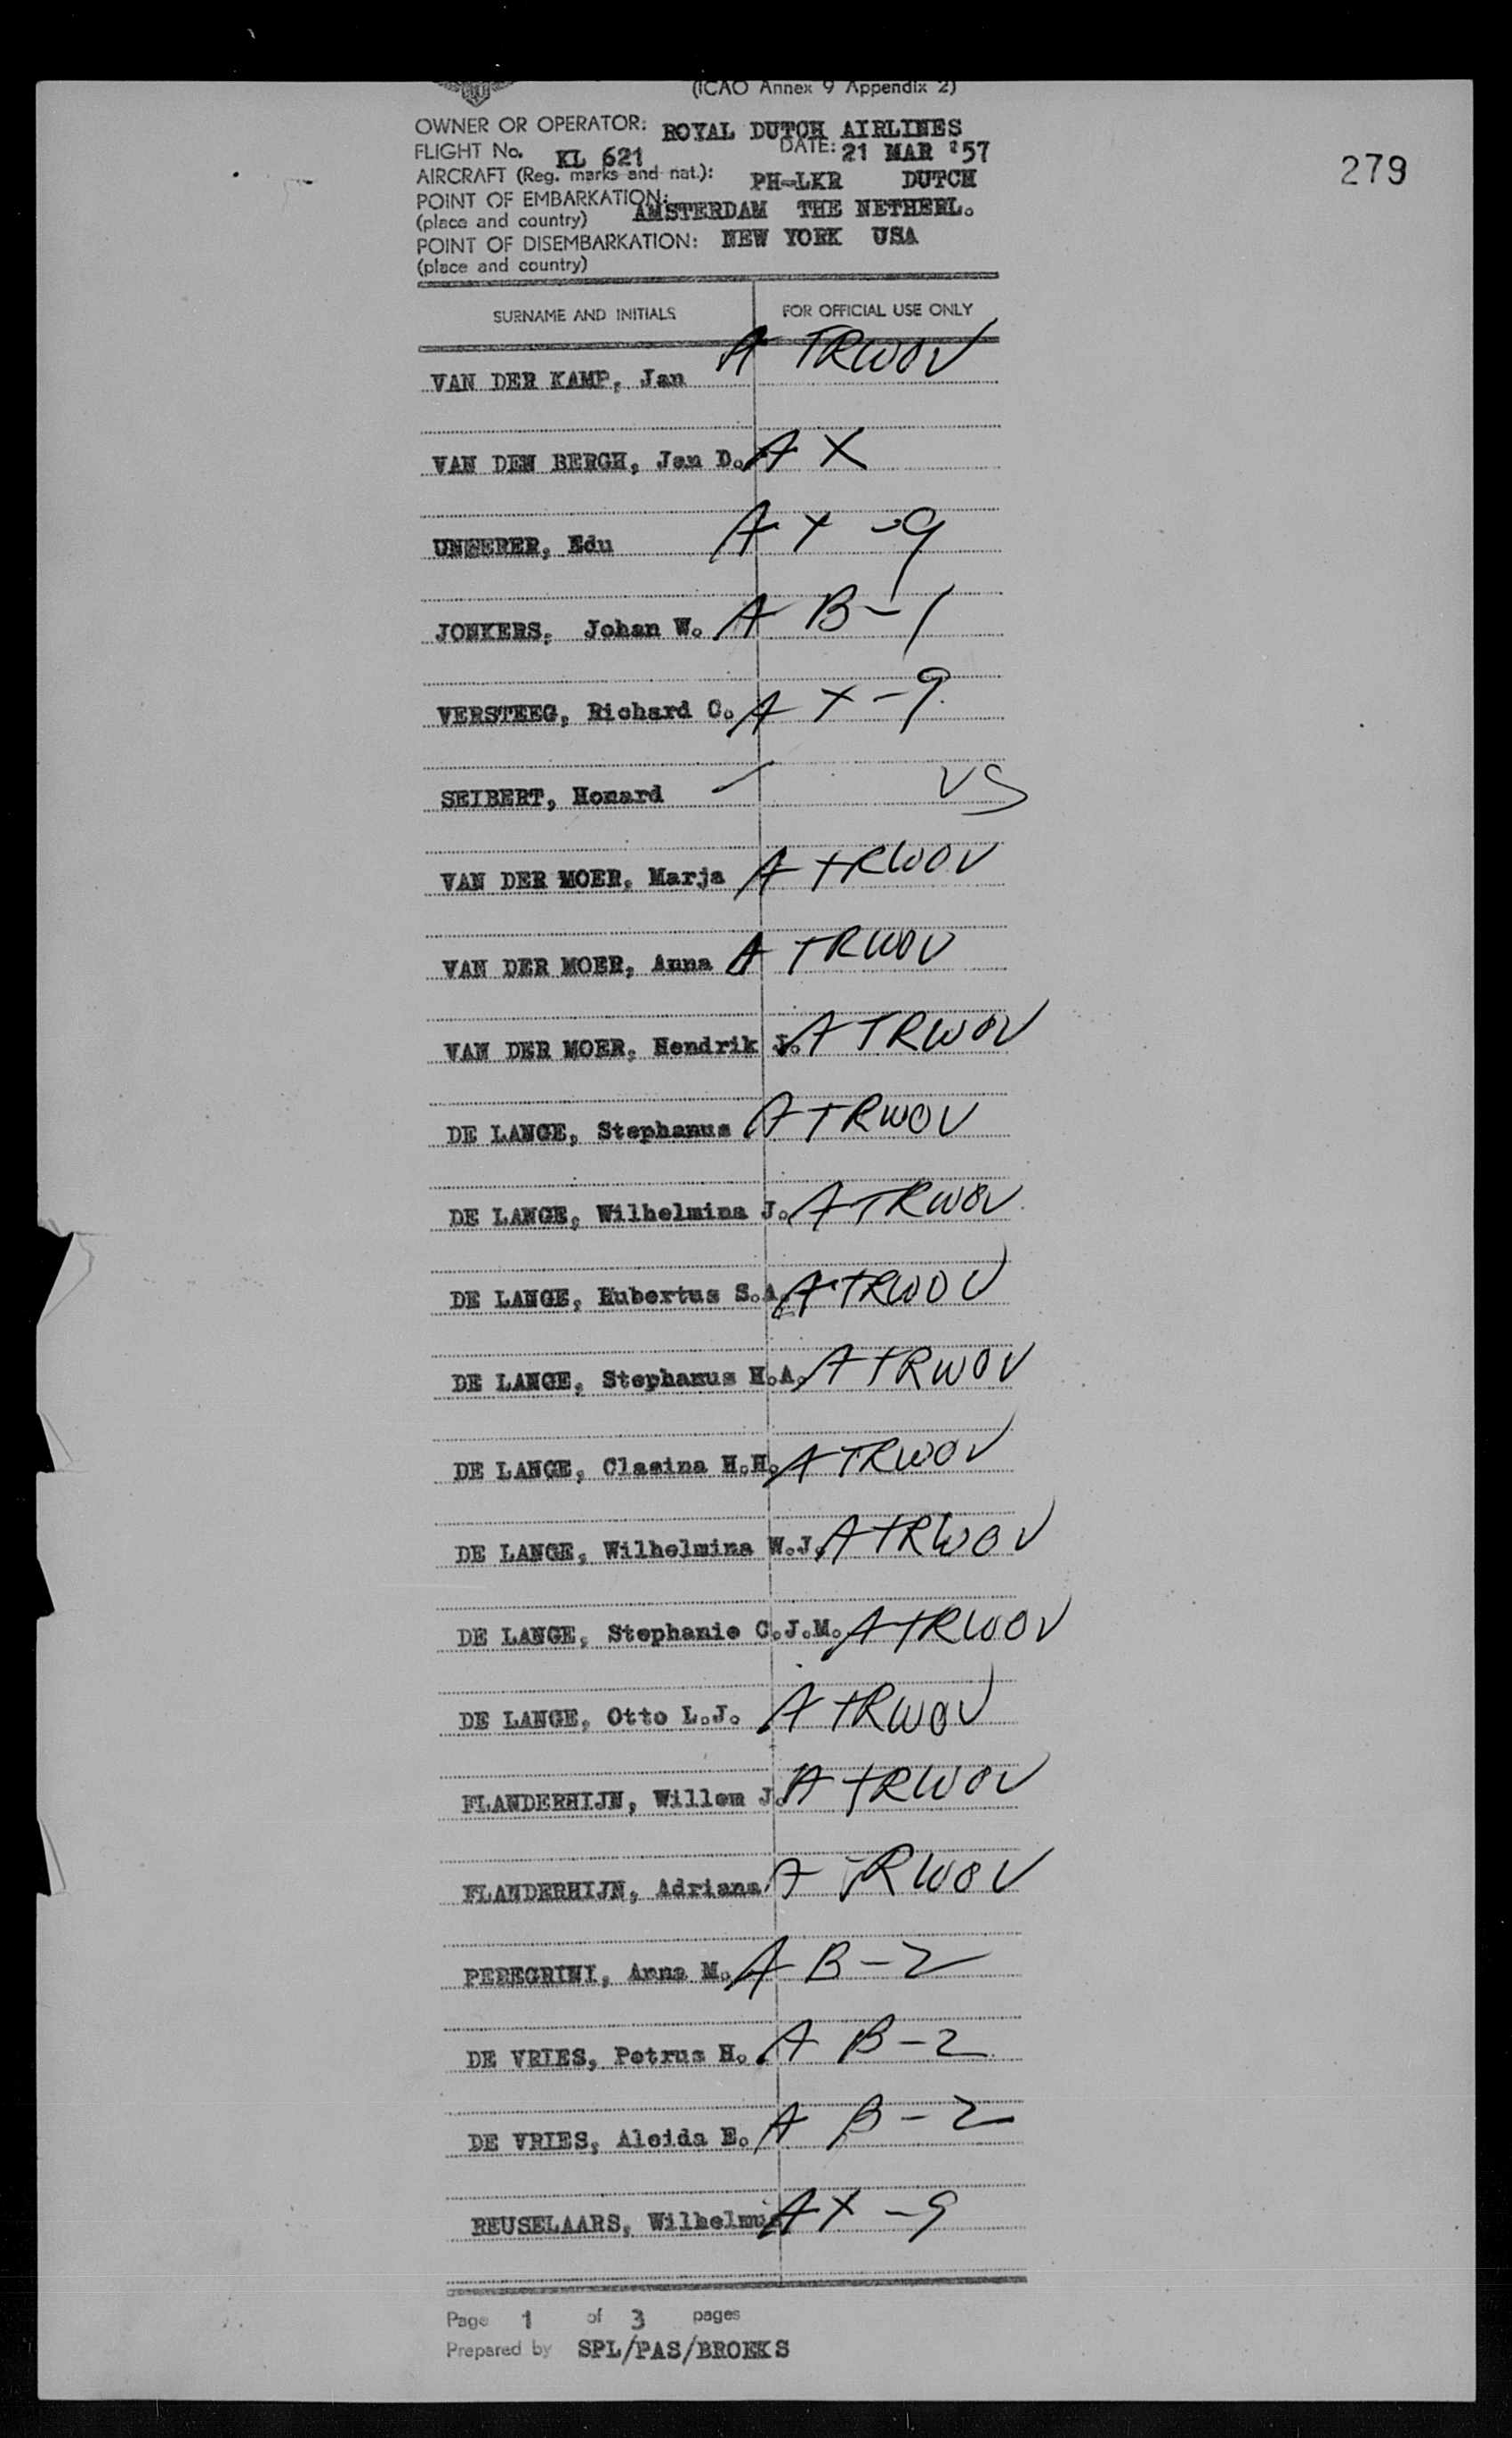 (ICAO Annex 9 Appendix 2)
OWNER OR OPERATOR: ROYAL DUTCH AIRLINES
FLIGHT No. KL 621 DATE: 21 MAR '57
279
AIRCRAFT (Reg. marks and nat.): PH-LKR DUTCH
POINT OF EMBARKATION: AMSTERDAM THE NETHERL.
(place and country)
POINT OF DISEMBARKATION: NEW YORK USA
(place and country)
SURNAME AND INITIALS FOR OFFICIAL USE ONLY
VAN DER KAMP, Jan A TRWOV
VAN DEN BERGH, Jan D. A X
UNGERER, Edu A X -9
JONKERS, Johan W. A B-1
VERSTEEG, Richard C. A X-9
SEIBERT, Homard VS
VAN DER MOER, Marja A TRWOV
VAN DER MOER, Anna A TRWOV
VAN DER MOER, Hendrik J. A TRWOV
DE LANGE, Stephanus A TRWOV
DE LANGE, Wilhelmina J. A TRWOV
DE LANGE, Hubertus S.A. A TRWOV
DE LANGE, Stephanus H.A. A TRWOV
DE LANGE, Clasina H.H. A TRWOV
DE LANGE, Wilhelmina W.J. A TRWOV
DE LANGE, Stephanie C.J.M. A TRWOV
DE LANGE, Otto L.J. A TRWOV
FLANDERHIJN, Willem J. A TRWOV
FLANDERHIJN, Adriana A TRWOV
PEREGRINI, Anna M. A B-2
DE VRIES, Petrus H. A B-2
DE VRIES, Aleida E. A B-2
REUSELAARS, Wilhelmus A X-9
Page 1 of 3 pages
Prepared by SPL/PAS/BROEKS